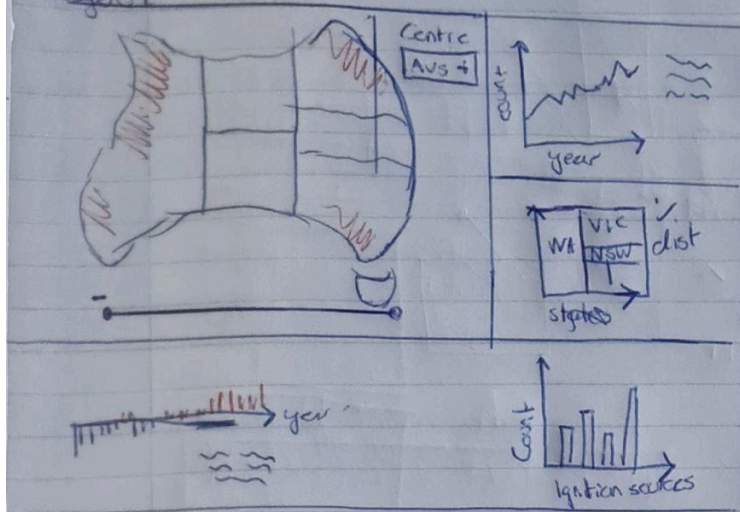 Centre
AUS
count
year
WA
VIC
NSW
% dist
states
year
Count
Ignition sources